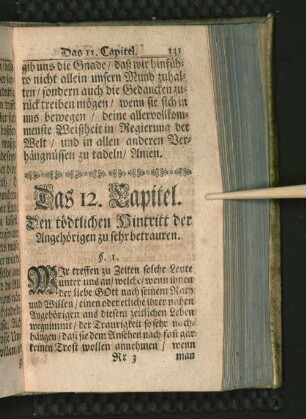 Das 11. Capitel. 131
gib uns die Gnade / daß wir hinfüh-
ro nicht allein unsern Mund zuhal-
ten / sondern auch die Gedancken zu-
rück treiben mögen / wenn sie sich in
uns bewegen / deine allervollkom-
menste Weißheit in Regierung der
Welt / und in allen anderen Ver-
hängnüssen zu tadeln / Amen.
Das 12. Capitel.
Den tödtlichen Hintritt der
Angehörigen zu sehr betrauren.
§. 1.
WIr treffen zu Zeiten solche Leute
unter uns an / welche / wenn ihnen
der liebe GOtt nach seinem Rath
und Willen / einen oder etliche ihrer nahen
Angehörigen aus diesem zeitlichen Leben
wegnimmt / der Traurigkeit so sehr nach-
hängen / daß sie dem Ansehen nach fast gar
keinen Trost wollen annehmen / wenn
Rr 3 man